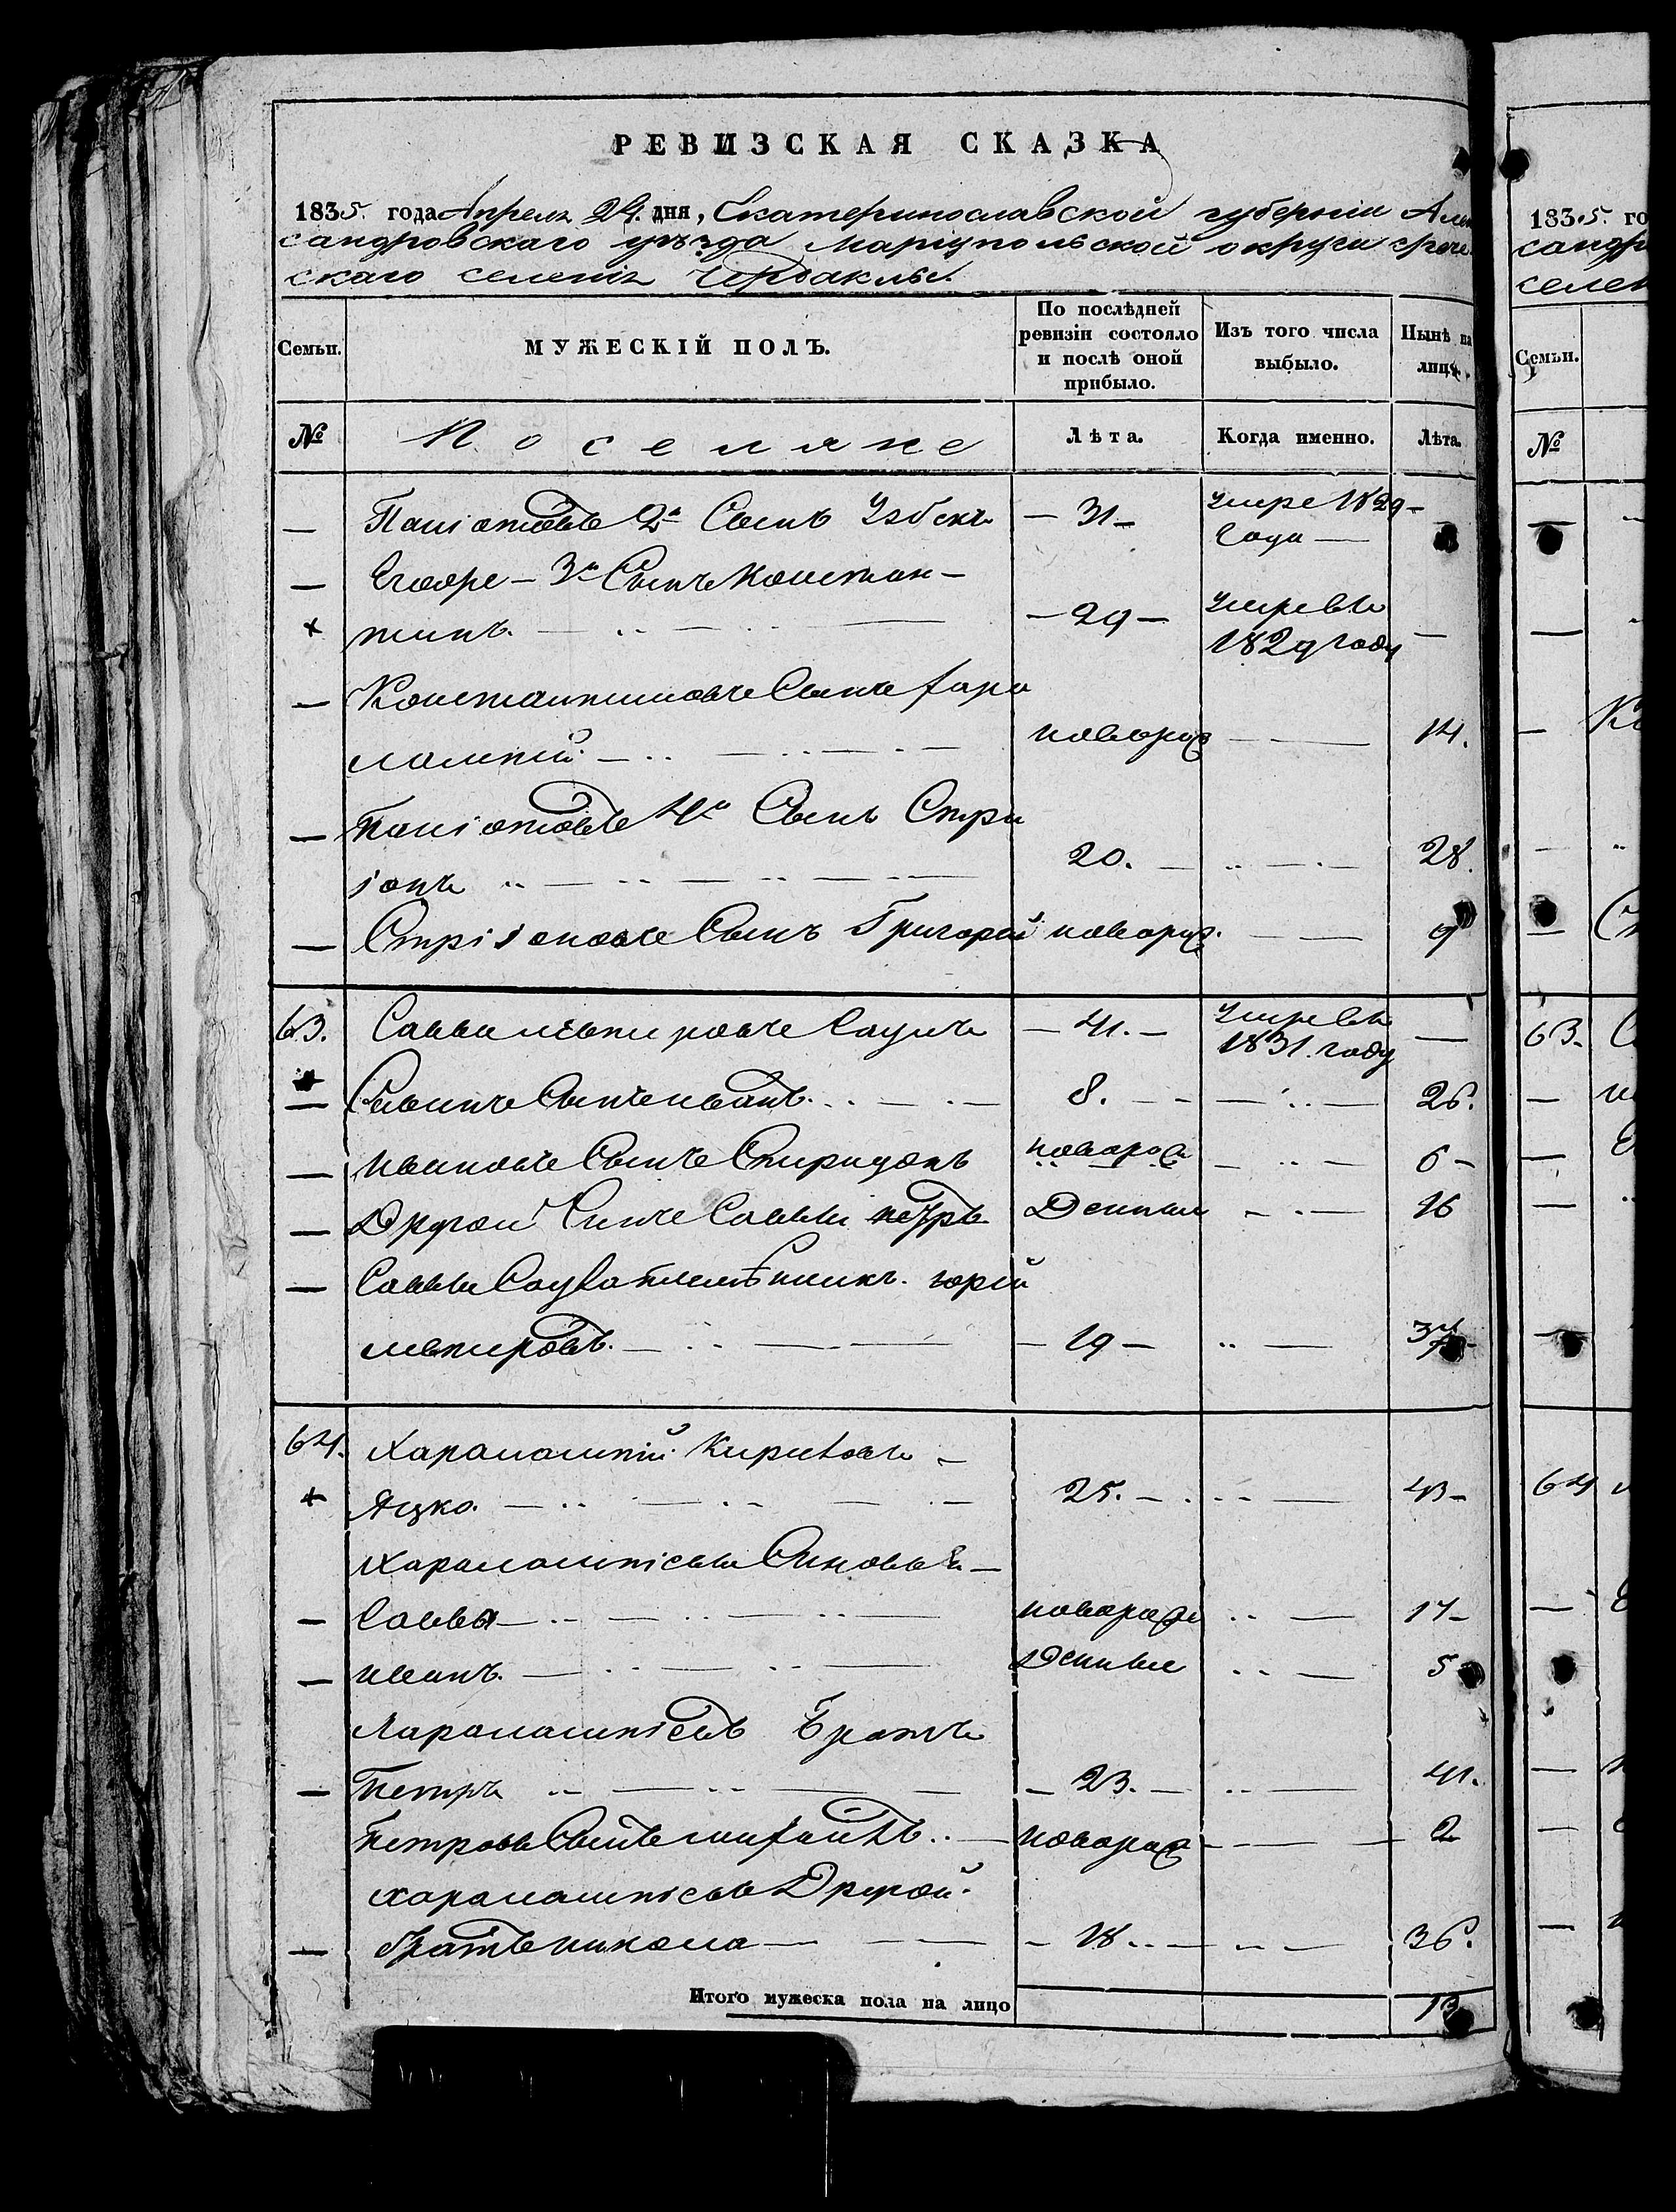 РЕВИЗСКАЯ СКАЗКА
1835. года Апреля 24. дня, Екатеринославской губернии Алек
сандровскаго уѣзда Маріупольской округи грече
скаго селенія Чердаклы.
Семьи.
МУЖЕСКІЙ ПОЛЪ.
По послѣдней ревизіи состояло и послѣ оной прибыло.
Изъ того числа выбыло.
Нынѣ на лицо.
№ Поселяне Лѣта. Когда именно. Лѣта.
— Паніотовъ 2й Сынъ — 31 — умре 1829 —
года —
— Егооре — 3й Сынъ Констан —
+ тинъ. — 29 — умре въ
1829 году —
— Константиновъ Сынъ Хара
лампій. новорож 14.
— Паніотовъ 4й Сынъ Стри
іонъ 20. 28.
— Стріионовъ Сынъ Григорій новорож. 9
63. Савва Саулъ — 41. — умре въ
1831. году —
+
— Саввинъ Сынъ Иванъ. 8. 26.
— Ивановъ Сынъ Спиридонъ новорож 6 —
— Другой Сынъ Саввы Петръ денныя 16
— Саввы Саула племѣнникъ. Юрій
— 19 — 37 —
64. Харалампій Кириковъ —
+ Яцко. 25. — 43 —
Харалампіевы Сыновья —
— Савва новорож 17 —
— Иванъ. денныя 5
Харалампіевъ Братъ
— Петръ — 23. — 41.
Петровъ Сынъ новорож 2
Харалампіевъ Другой
— братъ Никола — 18. 36.
Итого мужеска пола на лицо 13
1835. го
сандр
селен
Семьи.
№
63.
64